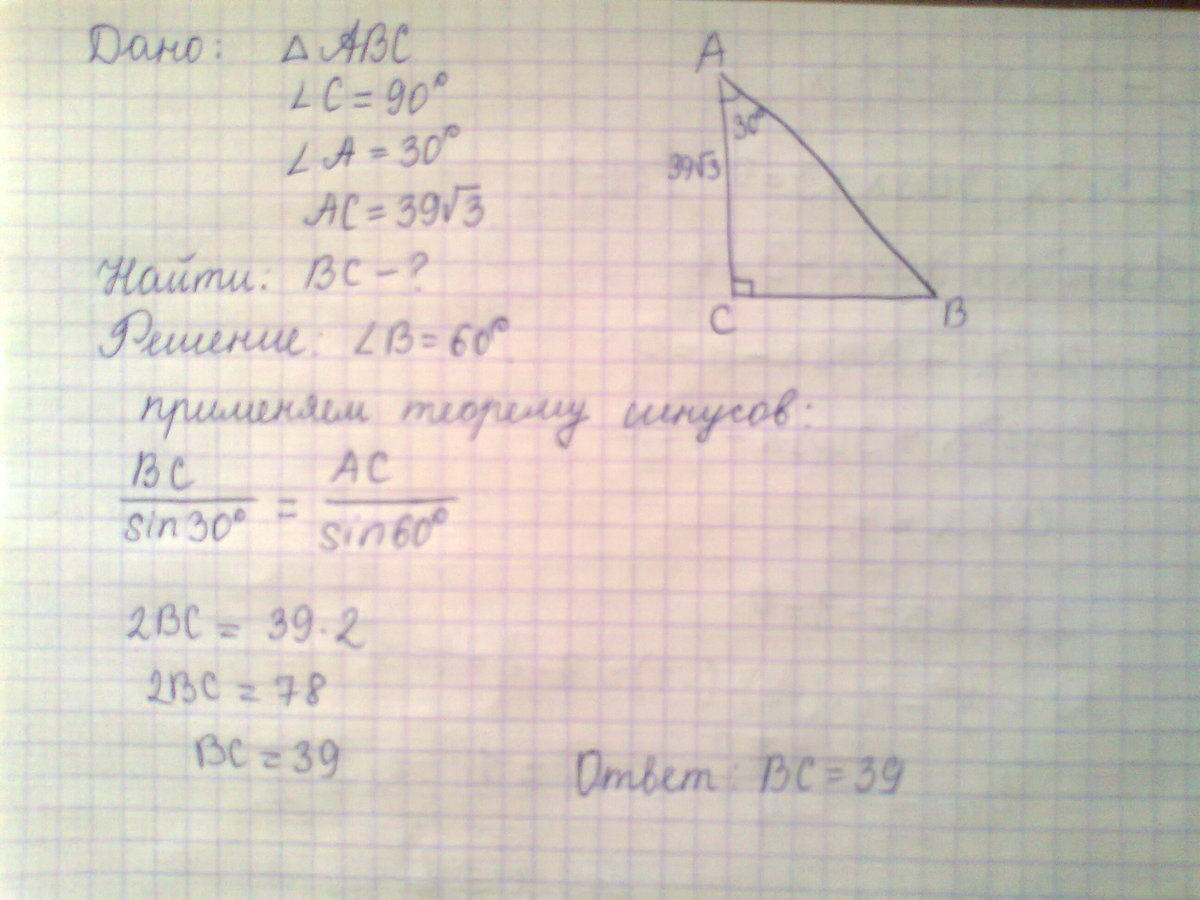 Дано: △ABC
∠C = 90°
∠A = 30°
AC = 39√3
Найти: BC - ?
Решение: ∠B = 60°
применяем теорему синусов:
BC/sin30° = AC/sin60°
2BC = 39·2
2BC = 78
BC = 39
Ответ: BC = 39
A
30°
39√3
C
B